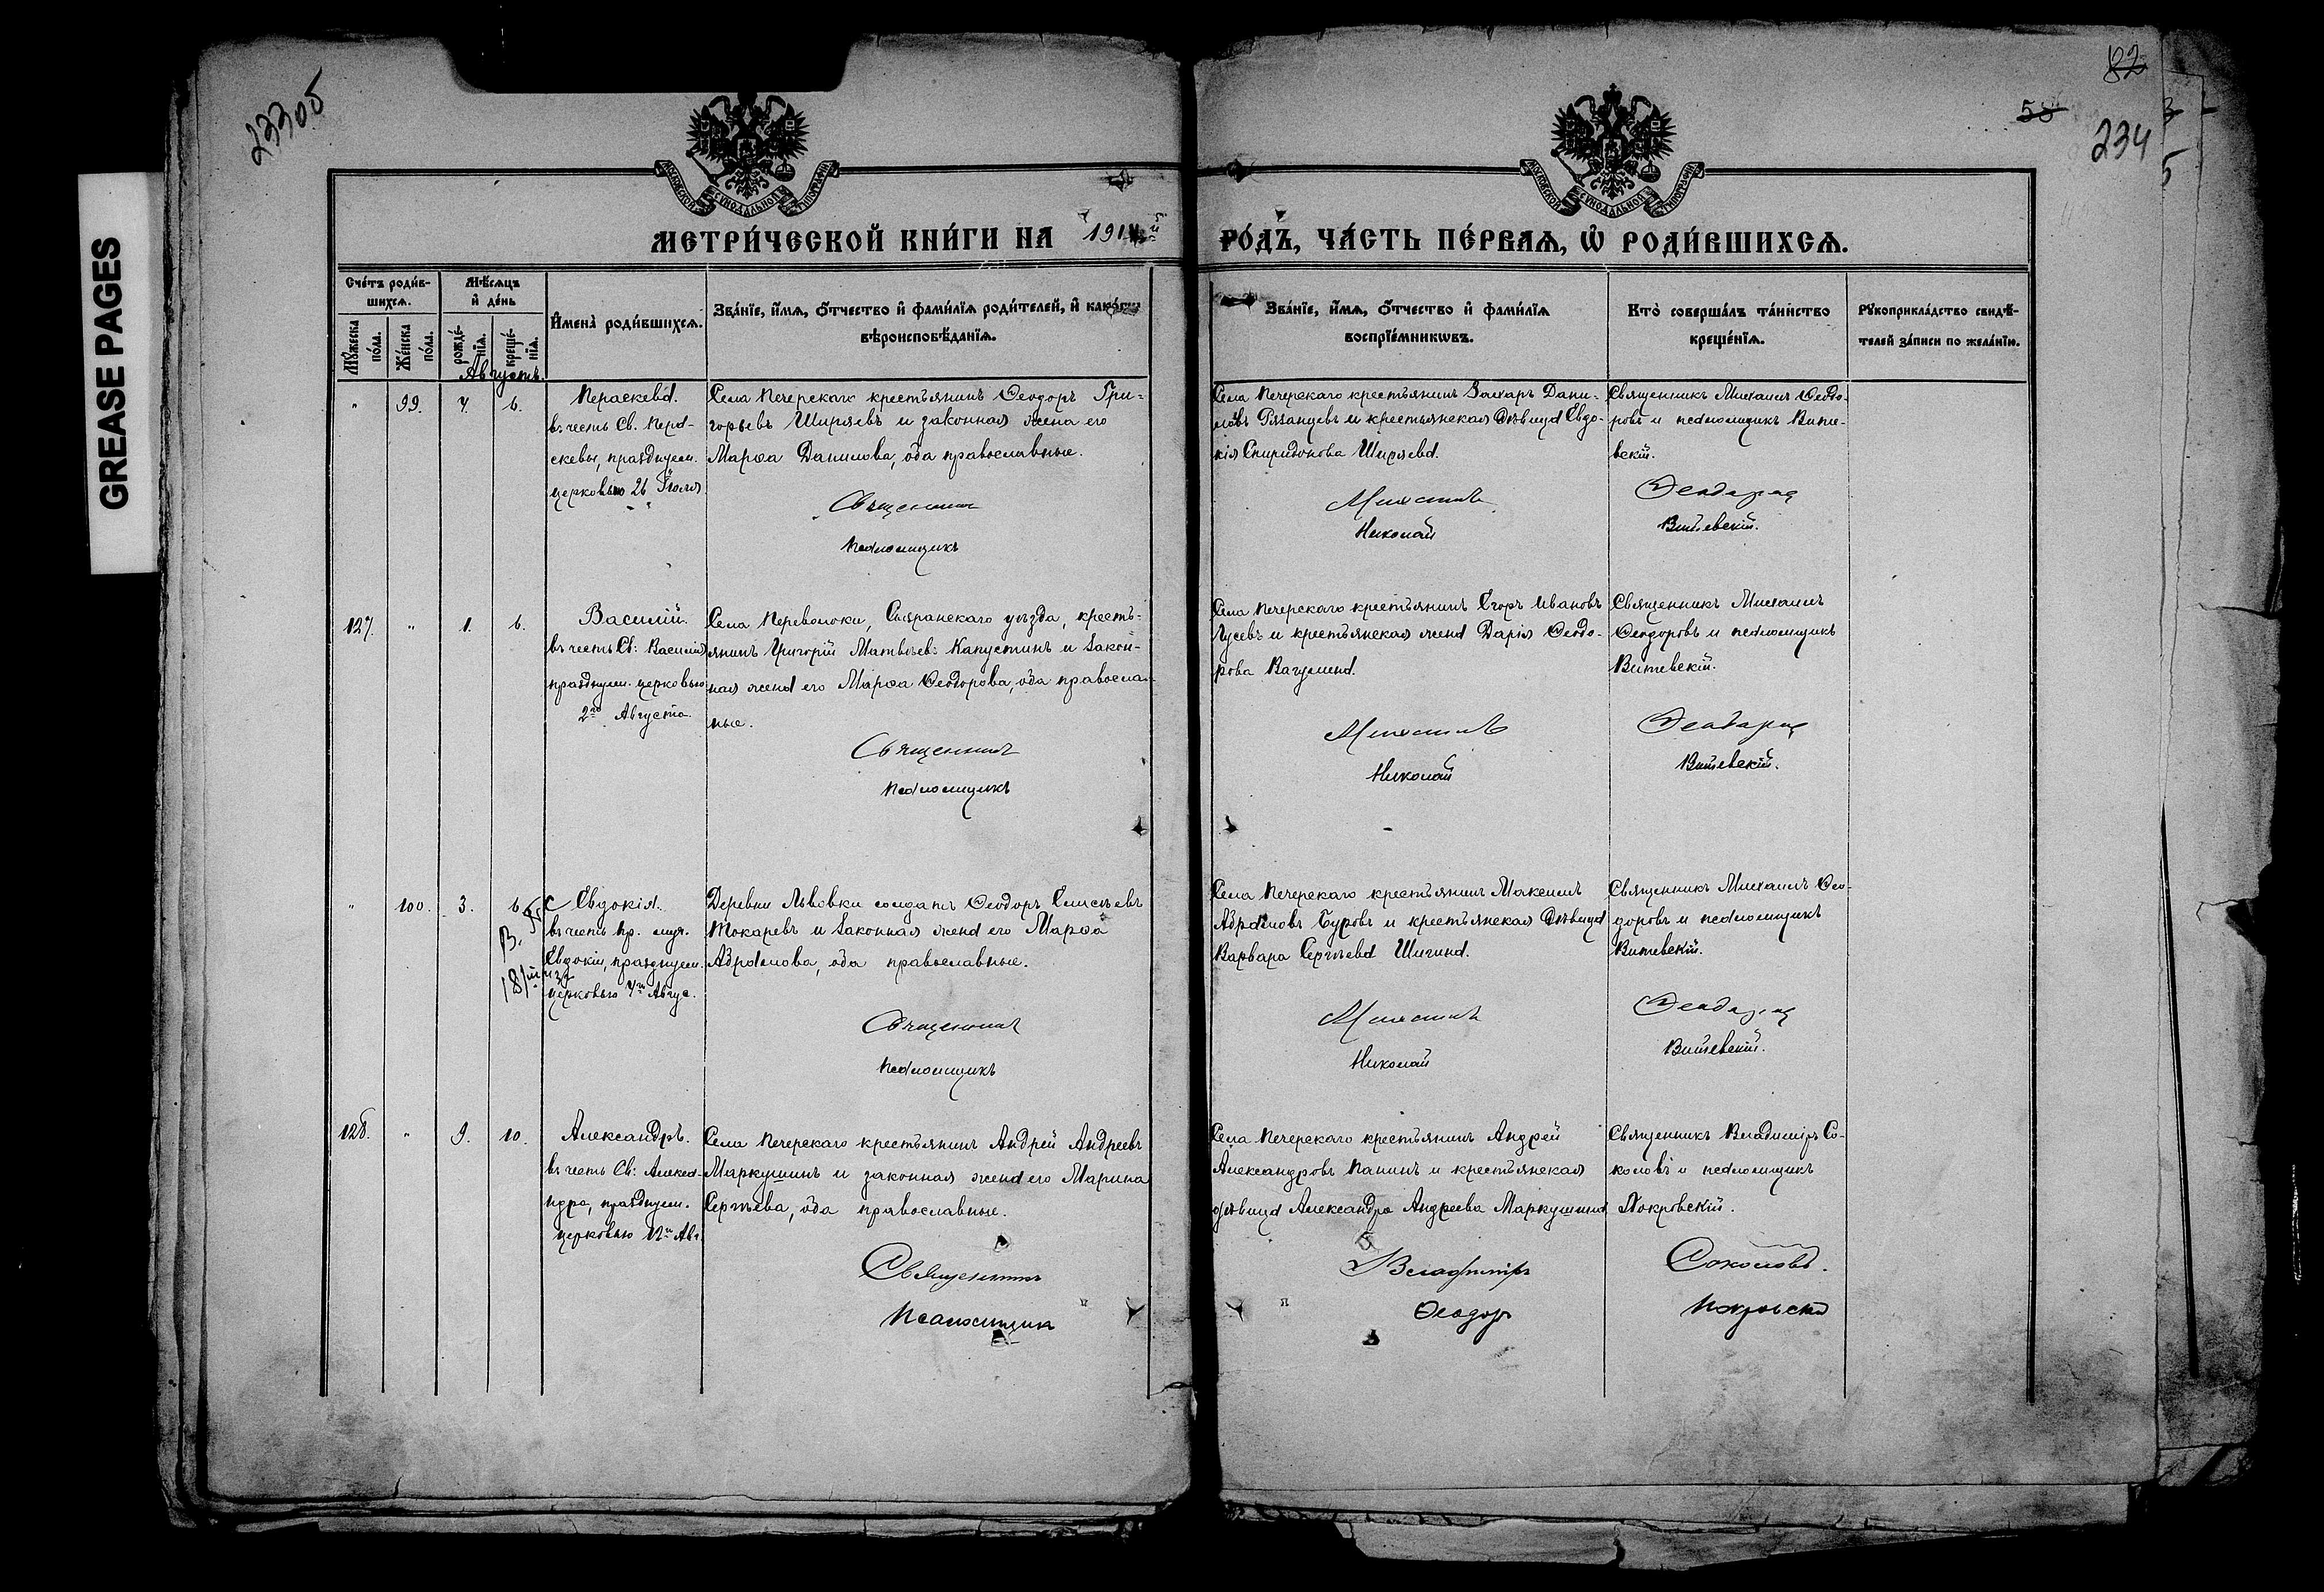 GREASE PAGES
23305
82
58
234
МОСКОВСКОЙ СѴНОДАЛЬНОЙ ТИПОГРАФІИ
МОСКОВСКОЙ СѴНОДАЛЬНОЙ ТИПОГРАФІИ
МЕТРИ́ЧЕСКОЙ КНИ́ГИ НА 1914й
ГО́ДЪ, ЧА́СТЬ ПЕ́РВАѦ, Ѡ҆ РОДИ́ВШИХСѦ.
Сче́тъ роди́в-
шихсѧ.
Мѣ́сѧцъ
и҆ де́нь
Мꙋ́жеска по́ла.
Же́нска по́ла.
рожде́-нїѧ.
креще́-нїѧ.
И҆мена̀ роди́вшихсѧ.
Зва́нїе, и҆́мѧ, ѻ҆́тчество и҆ фами́лїѧ роди́телей, и҆ како́гѡ
вѣроисповѣ́данїѧ.
Зва́нїе, и҆́мѧ, ѻ҆́тчество и҆ фами́лїѧ
воспрїе́мникѡвъ.
Кто̀ соверша́лъ та́инство
креще́нїѧ.
Рꙋкоприкла́дство свидѣ́-
телей за́писи по жела́нїю.
Августъ.
" 99. 4. 6.
Параскева.
въ честь Св. Пара-
скевы, празднуем.
церковью 26 Іюля.
Села Печерскаго крестьянинъ Ѳеодоръ Гри-
горьевъ Ширяевъ и законная жена его
Марѳа Данилова, оба православные.
Священникъ
Псаломщикъ
Села Печерскаго крестьянинъ Захаръ Дани-
ловъ Рязанцевъ и крестьянская дѣвица Евдо-
кія Спиридонова Ширяева.
Михаилъ
Николай
Священникъ Михаилъ Ѳеодо-
ровъ и псаломщикъ Витев-
вскій.
Ѳеодоровъ
Витевскій.
127. " 1. 6.
Василій.
въ честь Св: Василія
празднуем. церковью
2го Августа.
Села Переволоки, Сызранскаго уѣзда, кресть-
янинъ Григорій Матвѣевъ Капустинъ и закон-
ная жена его Марѳа Ѳеодорова, оба православ-
ные.
Священникъ
Псаломщикъ
Села Печерскаго крестьянинъ Егоръ Ивановъ
Гусевъ и крестьянская жена Дарія Ѳеодо-
рова Вагулина.
Михаилъ
Николай
Священникъ Михаилъ
Ѳеодоровъ и псаломщикъ
Витевскій.
Ѳеодоровъ
Витевскій.
" 100. 3. 6
Евдокія.
въ честь пр. муч.
Евдокіи, празднуем.
церковью 4го Авгус.
Деревни Львовки солдатъ Ѳеодоръ Елисѣевъ
Токаревъ и законная жена его Марѳа
Абрамова, оба православные.
Священникъ
Псаломщикъ
Села Печерскаго крестьянинъ Максимъ
Абрамовъ Буровъ и крестьянская дѣвица
Варвара Сергѣева Шигина.
Михаилъ
Николай
Священникъ Михаилъ Ѳео-
доровъ и псаломщикъ
Витевскій.
Ѳеодоровъ
Витевскій.
128. " 9. 10.
Александръ.
въ честь Св: Алекса-
ндра, празднуем.
церковью 12го Авг.
Села Печерскаго крестьянинъ Андрей Андреевъ
Маркушинъ и законная жена его Марина
Сергѣева, оба православные.
Священникъ
Псаломщикъ
Села Печерскаго крестьянинъ Андрей
Александровъ Панинъ и крестьянская
дѣвица Александра Андреева Маркушина
Владиміръ
Ѳеодоръ
Священникъ Владиміръ Со-
коловъ и псаломщикъ
Покровскій.
Соколовъ.
Покровскій